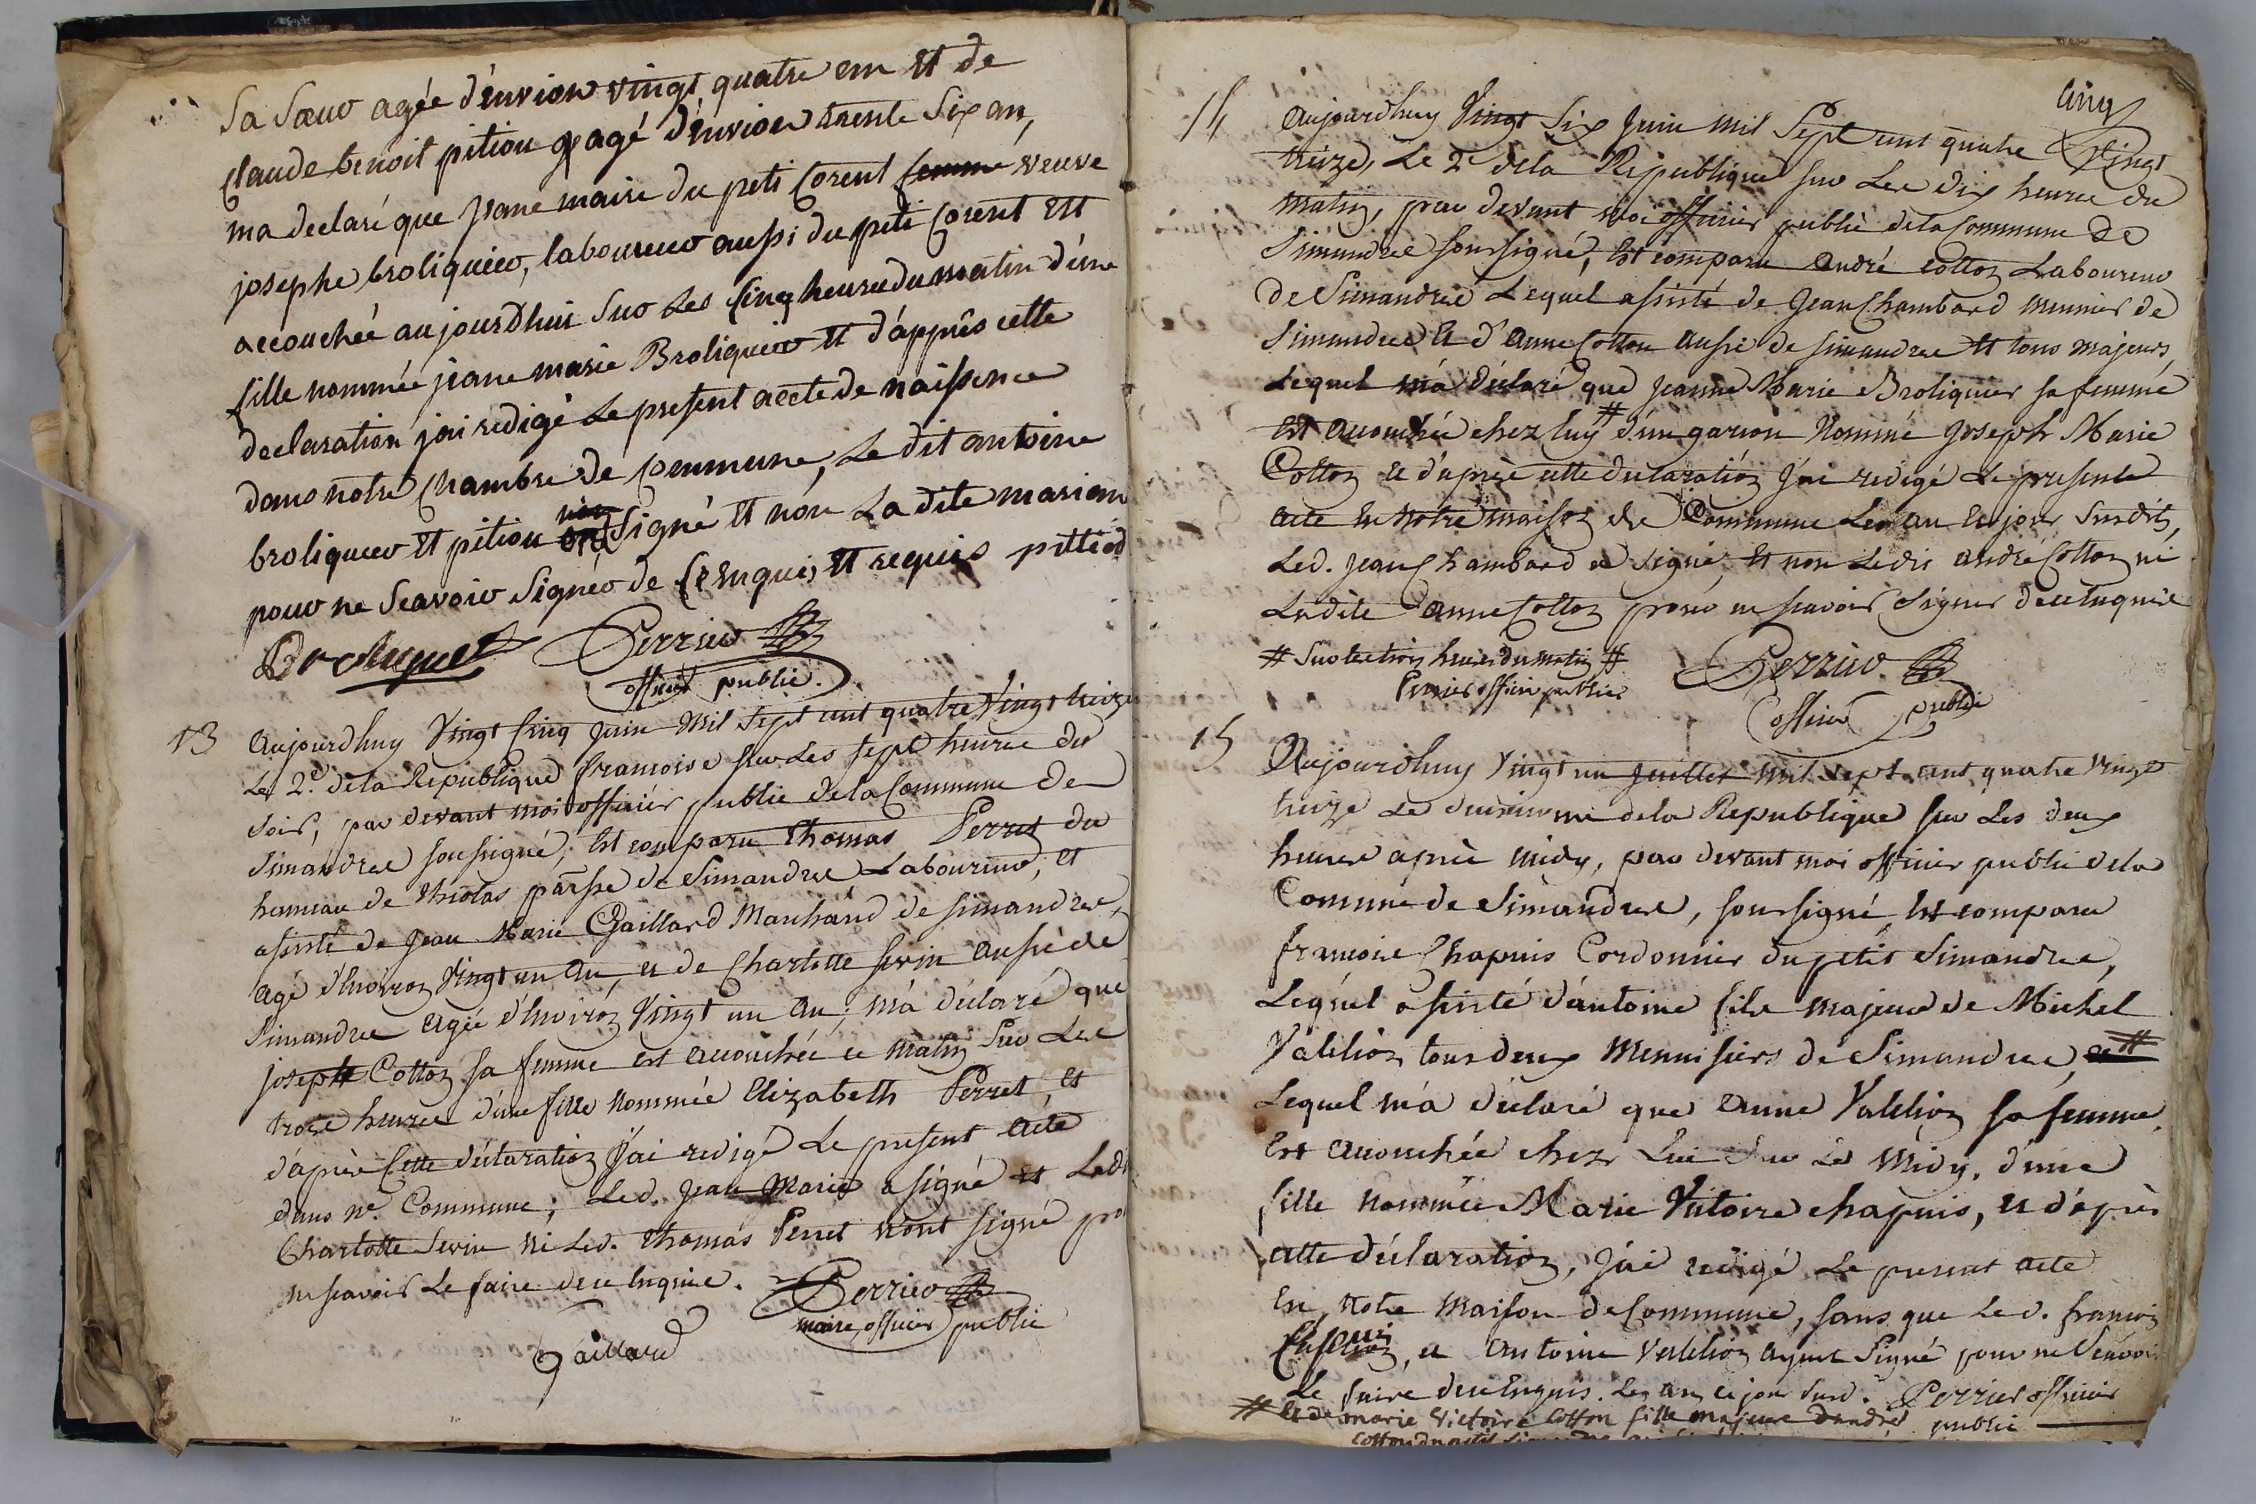 Sa Sœur agée d'environ vingt quatre ans Et de
Claude benoit pitiou agé d'environ trente Six an,
ma declaré que jeane marie du peti Corent femme veuve
josephe broliquier, laboureur aussi du peti Corent Est
accouchée aujourdhui Sur Les Cinq heure du matin d'une
fille nommée jeane marie Broliquier Et d'apprês cette
declaration j'ai redigé Le present accte de naissence
dans notre Chambre de Commune, Le dit antoine
broliquier Et pitiou non Signé Et non La dite marian
pour ne Scavoir Signér de Ce Enquis Et requis pittiod
Brolliquet Perrier
officier public.
13 Aujourdhuy Vingt Cinq Juin Mil Sept cent quatre Vingt treize
Le 2.e de la Republique françoise sur Les sept heures du
Soir, par devant moi officier public de la Commune de
Simandre soussigné, Est comparu Thomas Perret du
hameau de Thiolas parsse de Simandre Laboureur, Et
assisté de Jean Marie Gaillard Marchand de simandre,
agé d'Environ Vingt un An, et de Charlotte Sevin Aussi de
Simandre agée d'Environ Vingt un An; m'a déclaré que
josephte Cotton sa femme est accouchée ce matin Sur Les
trois heures d'une fille Nommée Elizabeth Perret, et
d'après Cette déclaration J'ai redigé Le present Acte
dans Ne. Commune; Led. Jean Marie a signé et Ladi
Charlotte Sevin Ni Led. Thomas Perret n'ont signé po
ne scavoir Le faire de ce Enquise. Perrier
maire, officier public
Gaillard
Cinq
14 Aujourdhuy Vingt Six Juin Mil Sept cent quatre Vingt
treize, Le 2e de la Republique sur Les dix heures du
matin, par devant Moi officier public de la Commune de
Simandre soussigné, Est comparu André Cotton Laboureur
de Simandre Lequel assisté de Jean Chambard Meunier de
Simandre Et d'Anne Cotton Aussi de simandre Et tous majeurs,
Lequel m'a déclaré que Jeanne Marie Broliquier sa femme
Est accouchée chez luy # d'un garcon Nommé Joseph Marie
Cotton Et d'après cette declaration J'ai redigé Le presente
Acte En Notre maison de Commune Les an Et jour Susdits,
Led. Jean Chambard a signé, Et non Ledit André Cotton ni
Ladite Anne Cotton pour ne scavoir Signer de ce Enquise
# Sur Les trois heures du matin #
Perrier officier public Perrier
officier public
15 Aujourdhuy Vingt un Juillet Mil Sept cent quatre Vingt
treize Le deuxieme de la Republique sur Les deux
heures après Midy, par devant moi officier public de la
Commune de Simandre, soussigné, Est comparu
françoise Chapuis Cordonnier du petit Simandre,
Lequel assisté d'antoine fils majeur de Michel
Valelion tous deux Menuisiers de Simandre, et #
Lequel m'a déclaré que Anne Valelion sa femme
Est Accouchée chez Lui Sur Le Midy, d'une
fille nommée Marie Victoire Chapuis, Et d'après
cette déclaration, J'ai redigé Le present Acte
En Notre Maison de Commune, sans que Led. francois
Chapuis, et Antoine Valelion ayent Signé pour ne Scavoir
Le faire de ce Enquis. Les an et jour Susd. Perrier officier
# Et de marie Victoire Cotton fille majeure d'andré public